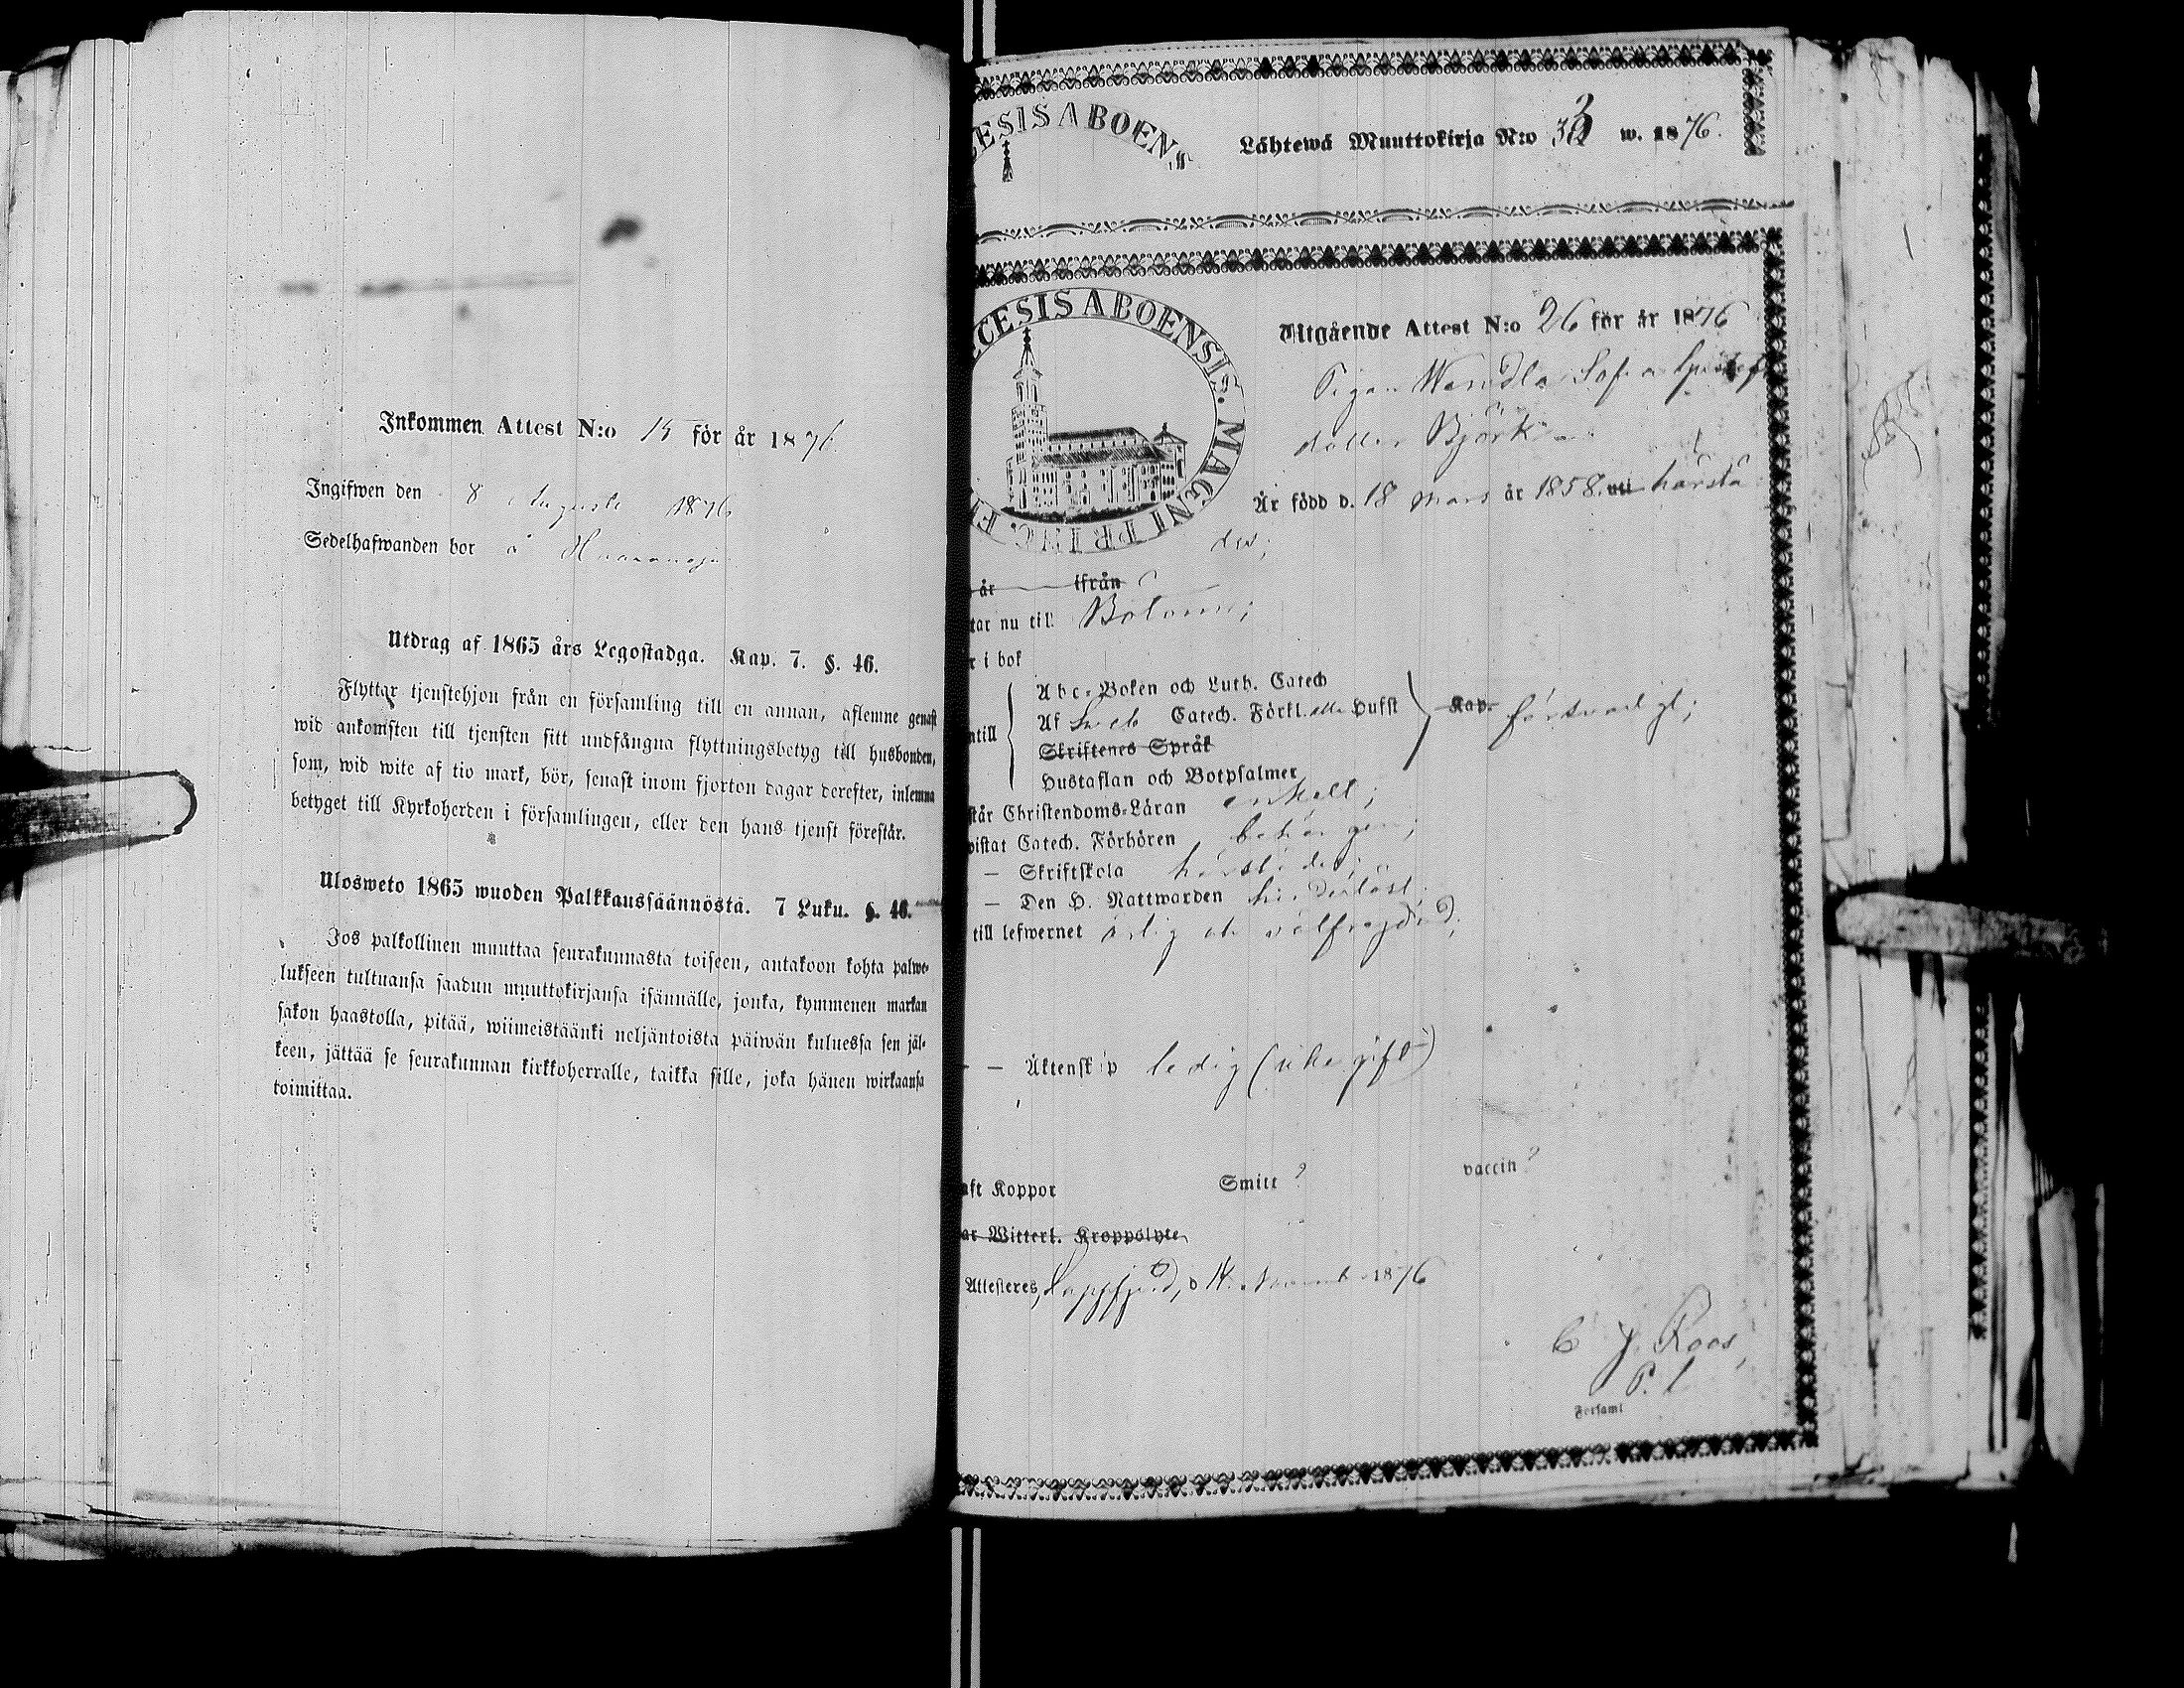 Inkommen Attest N:o 15 för år 1876.
Ingifwen den 8 Augusti 1876
Sedelhafwanden bor å
Utdrag af 1865 års Legostadga. Kap. 7. §. 46.
Flyttar tjenstehjon från en församling till en annan, aflemne genast
wid ankomsten till tjensten sitt undfångna flyttningsbetyg till husbonden,
som, wid wite af tio mark, bör, senast inom fjorton dagar derefter, inlemna
betyget till Kyrkoherden i församlingen, eller den hans tjenst förestår.
Ulosweto 1865 wuoden Palkkaussäännöstä. 7 Luku. §. 46.
Jos palkollinen muuttaa seurakunnasta toiseen, antakoon kohta palwe-
lukseen tultuansa saadun muuttokirjansa isännälle, jonka, kymmenen markan
sakon haastolla, pitää, wiimeistäänki neljäntoista päiwän kuluessa sen jäl-
keen, jättää se seurakunnan kirkkoherralle, taikka sille, joka hänen wirkaansa
toimittaa.
CESIS ABOENS
Lähtewä Muuttokirja N:o 33 w. 1876.
CESIS ABOENSIS. MAGNI PRINC. FI
Utgående Attest N:o 26 för år 1876
Pigan Wendla Sofia
dotter Björk
Är född d. 18 mars år 1858. uti härstä
des;
år ifrån
tar nu till
r i bok
Abc-Boken och Luth. Catech
ntill Af Sveb Catech. Förkl. eller Hufst Kap. försvarligt;
Skriftenes Språk
Hustaflan och Botpsalmer
står Christendoms-Läran enkelt;
vistat Catech. Förhören behörigen;
— Skriftskola härstädes;
— Den H. Nattwarden hinderlöst;
till lefwernet ärlig och välfrejdad;
— — Äktenskap ledig (icke gift)
aft Koppor Smitt ? vaccin ?
ar Witterl. Kroppslyte
Attesteres, Lappfjerd, d 14 November 1876
C J. Roos,
Församl